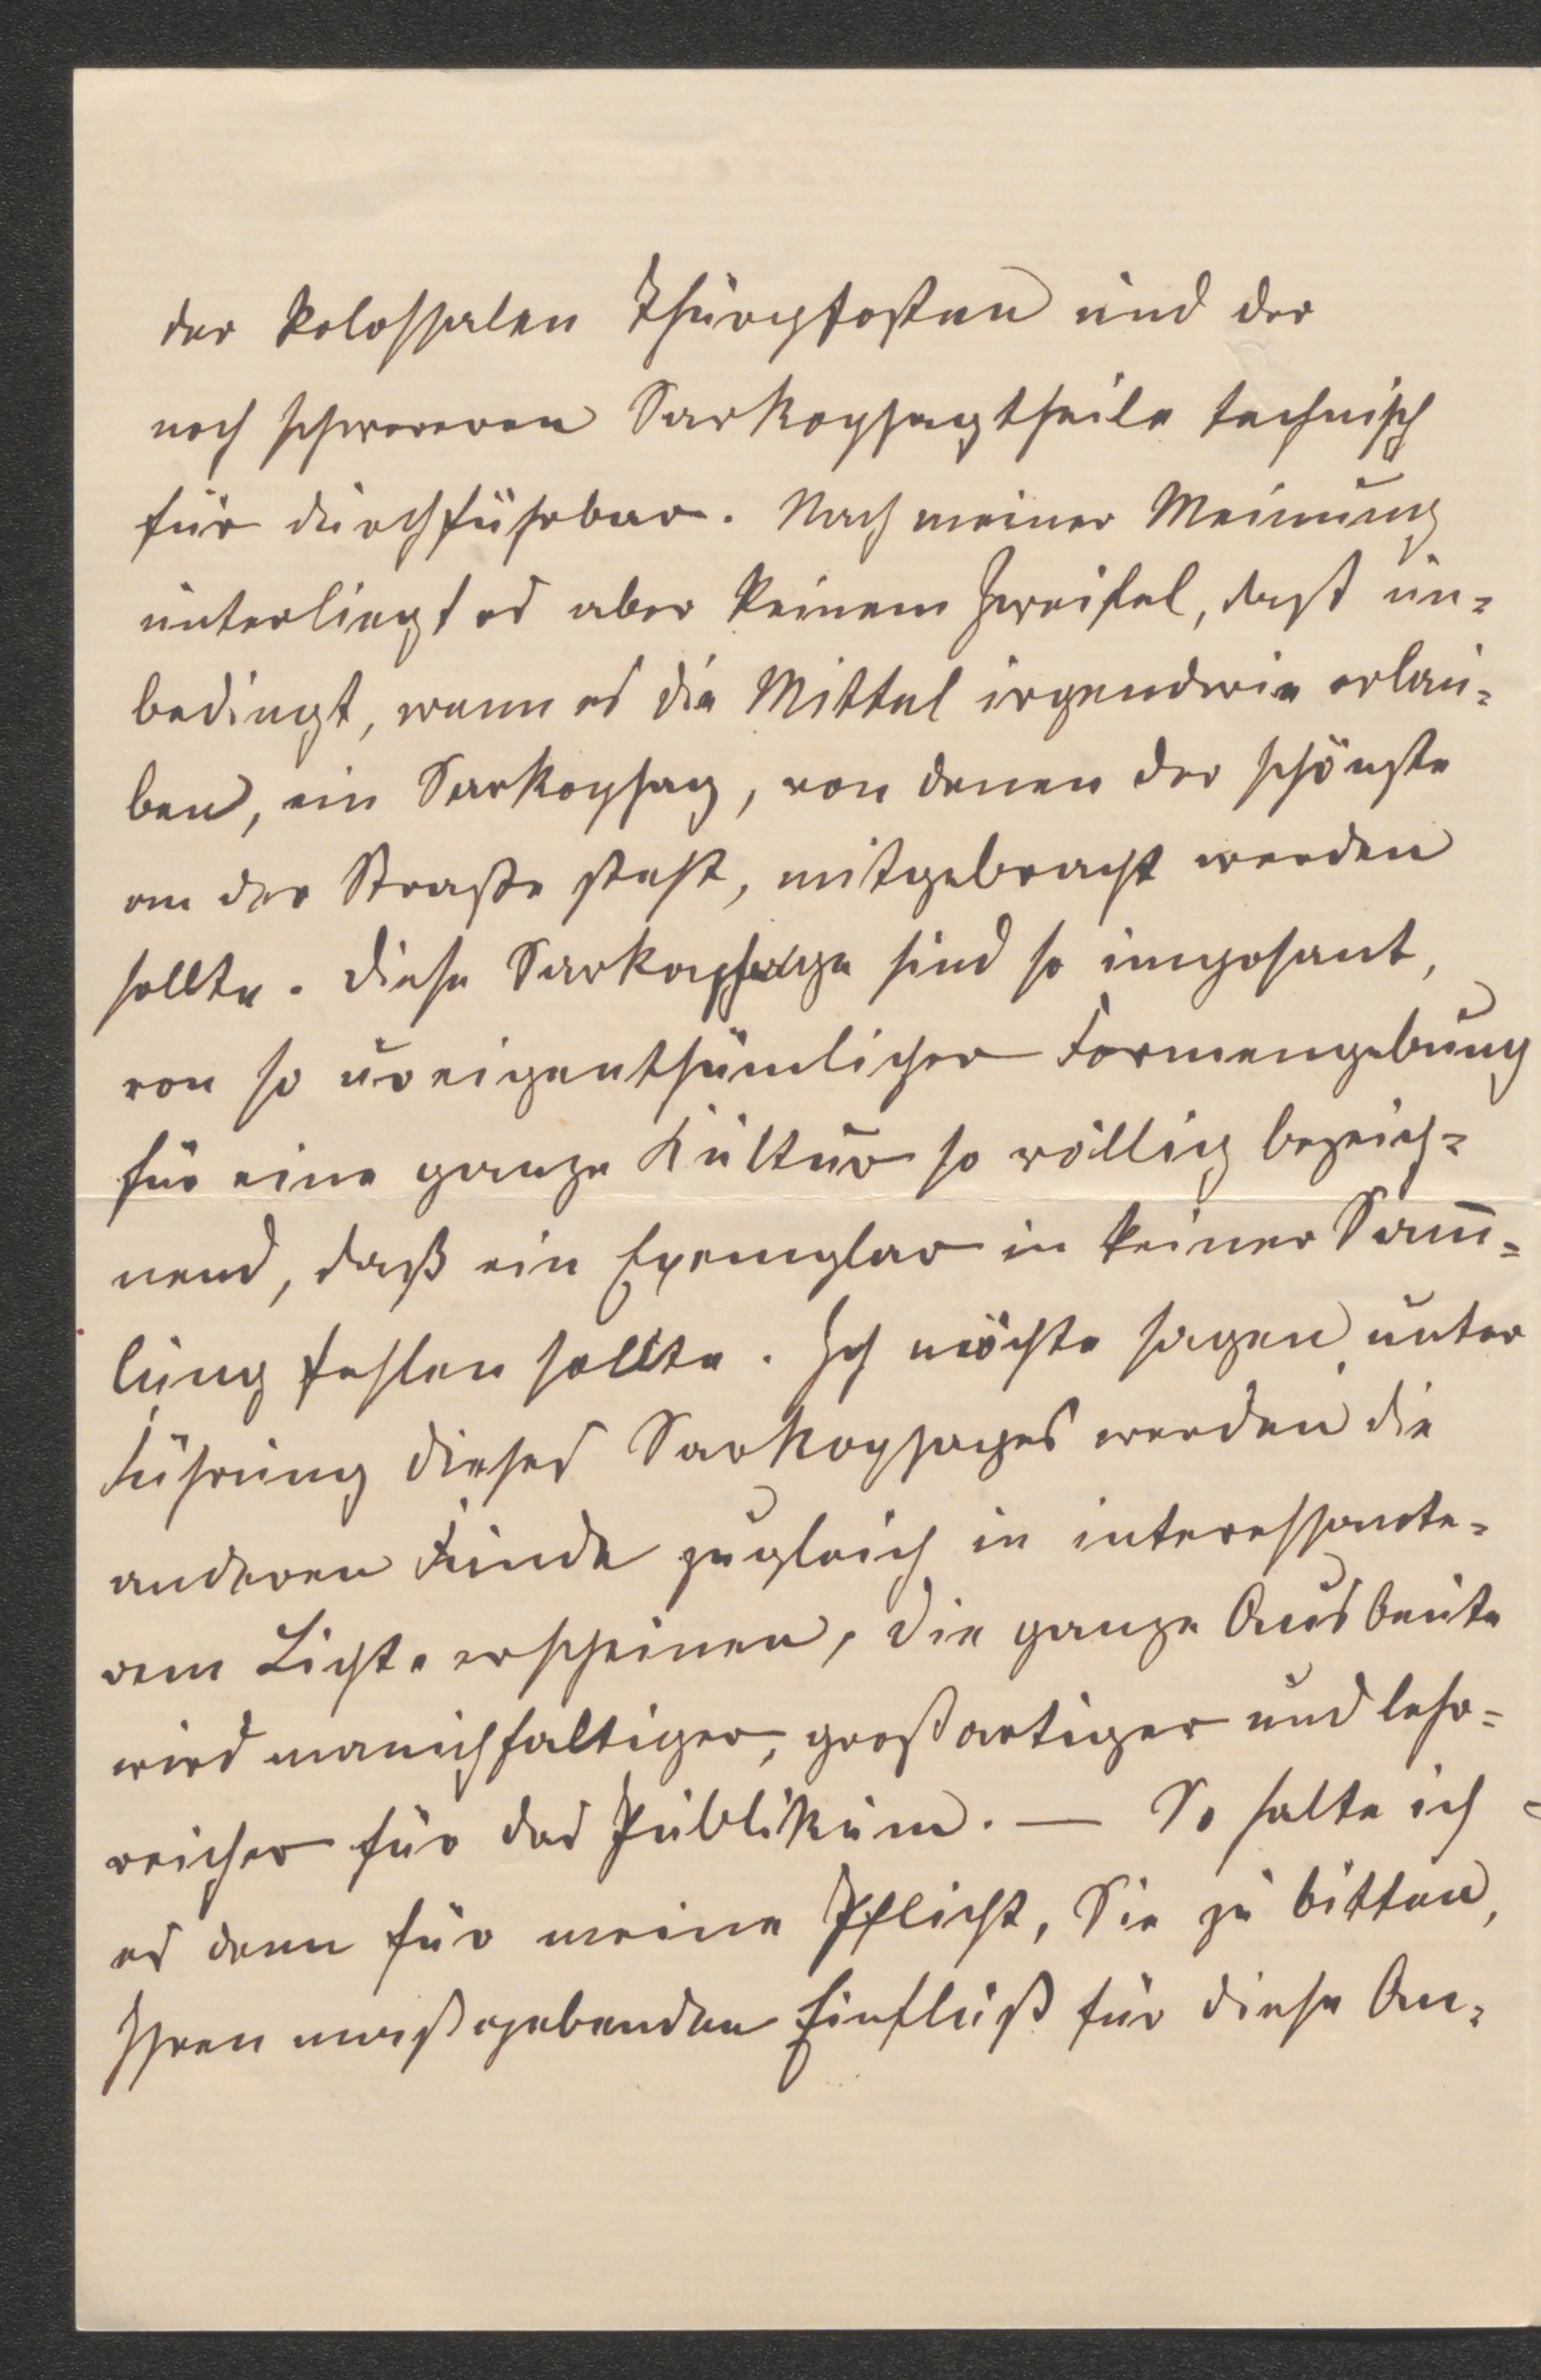 der kolossalen Thürpfosten und der
noch schwereren Sarkophagtheile technisch
für durchführbar. Nach meiner Meinung
unterliegt es aber keinem Zweifel, dasß un-
bedingt, wenn es die Mittel irgendwie erlau-
ben, ein Sarkophag, von denen der schönste
an der Straße steht, mitgebracht werden
sollte. Diese Sarkophage sind so imposant,
von so ureigenthümlicher Formengebung
für eine ganze Kultur so völlig bezeich-
nend, daß ein Exemplar in keiner Sam̅-
lung fehlen sollte. Ich möchte sagen, unter
Führung dieses Sarkophages werden die
anderen Funde zugleich in interessante-
rem Lichte erscheinen, die ganze Ausbeute
wird manichfaltiger, großartiger und lehr-
reicher für das Publikum. — So halte ich
es denn für meine Pflicht, Sie zu bitten,
Ihren maßgebenden Einfluß für diese An-